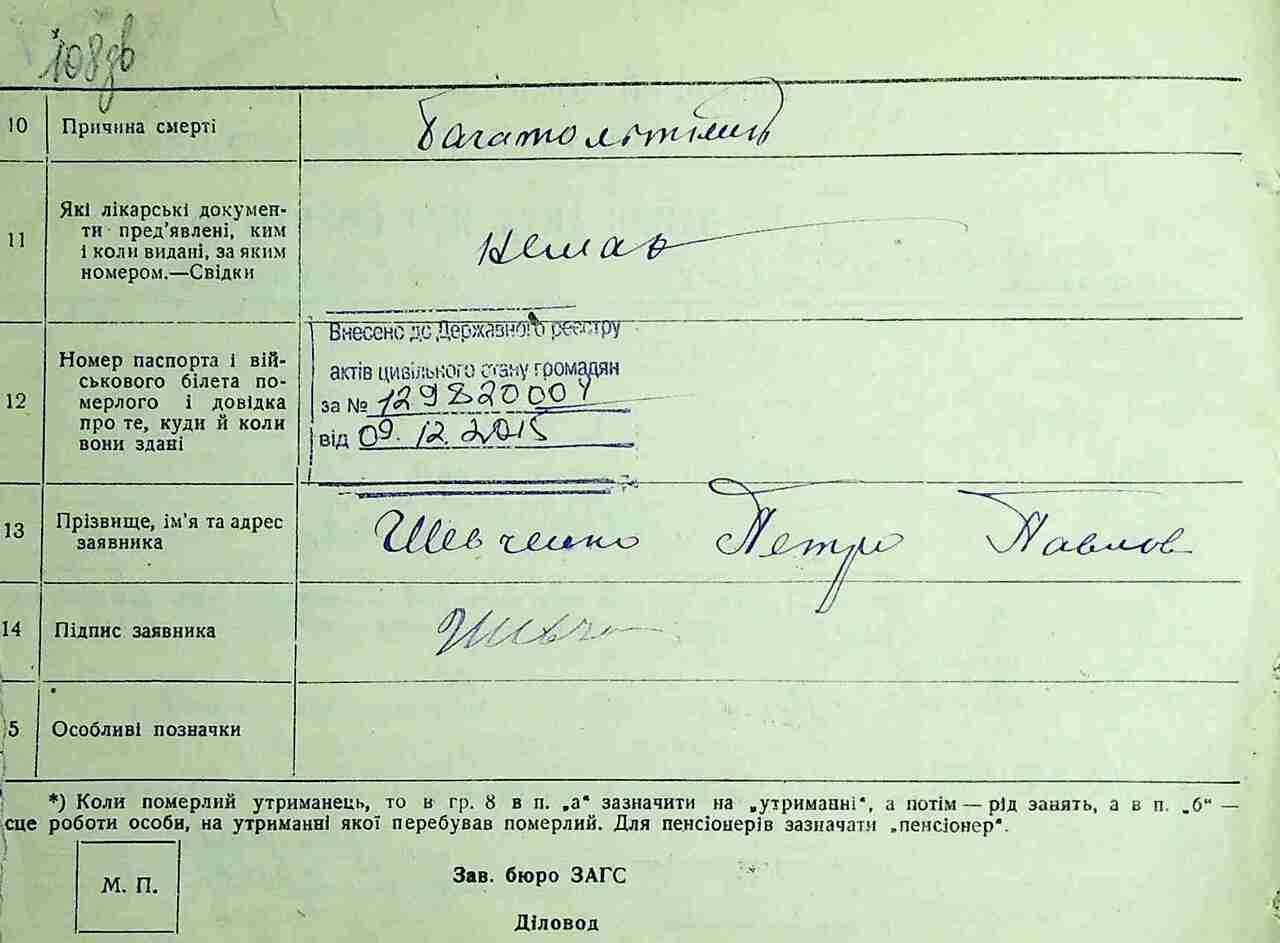 108зв
10 Причина смерті Багатолітть
11 Які лікарські докумен-
ти пред’явлені, ким
і коли видані, за яким
номером.—Свідки
немає
12 Номер паспорта і вій-
ськового білета по-
мерлого і довідка
про те, куди й коли
вони здані
Внесено до Державного реєстру
актів цивільного стану громадян
за №
від 09.12.2015
13 Прізвище, ім’я та адрес
заявника
Шевченко Петро Павлов
14 Підпис заявника
5 Особливі позначки
*) Коли померлий утриманець, то в гр. 8 в п. „а“ зазначити на „утриманні“, а потім — рід занять, а в п. „б“ —
сце роботи особи, на утриманні якої перебував померлий. Для пенсіонерів зазначати „пенсіонер“.
М. П.
Зав. бюро ЗАГС
Діловод